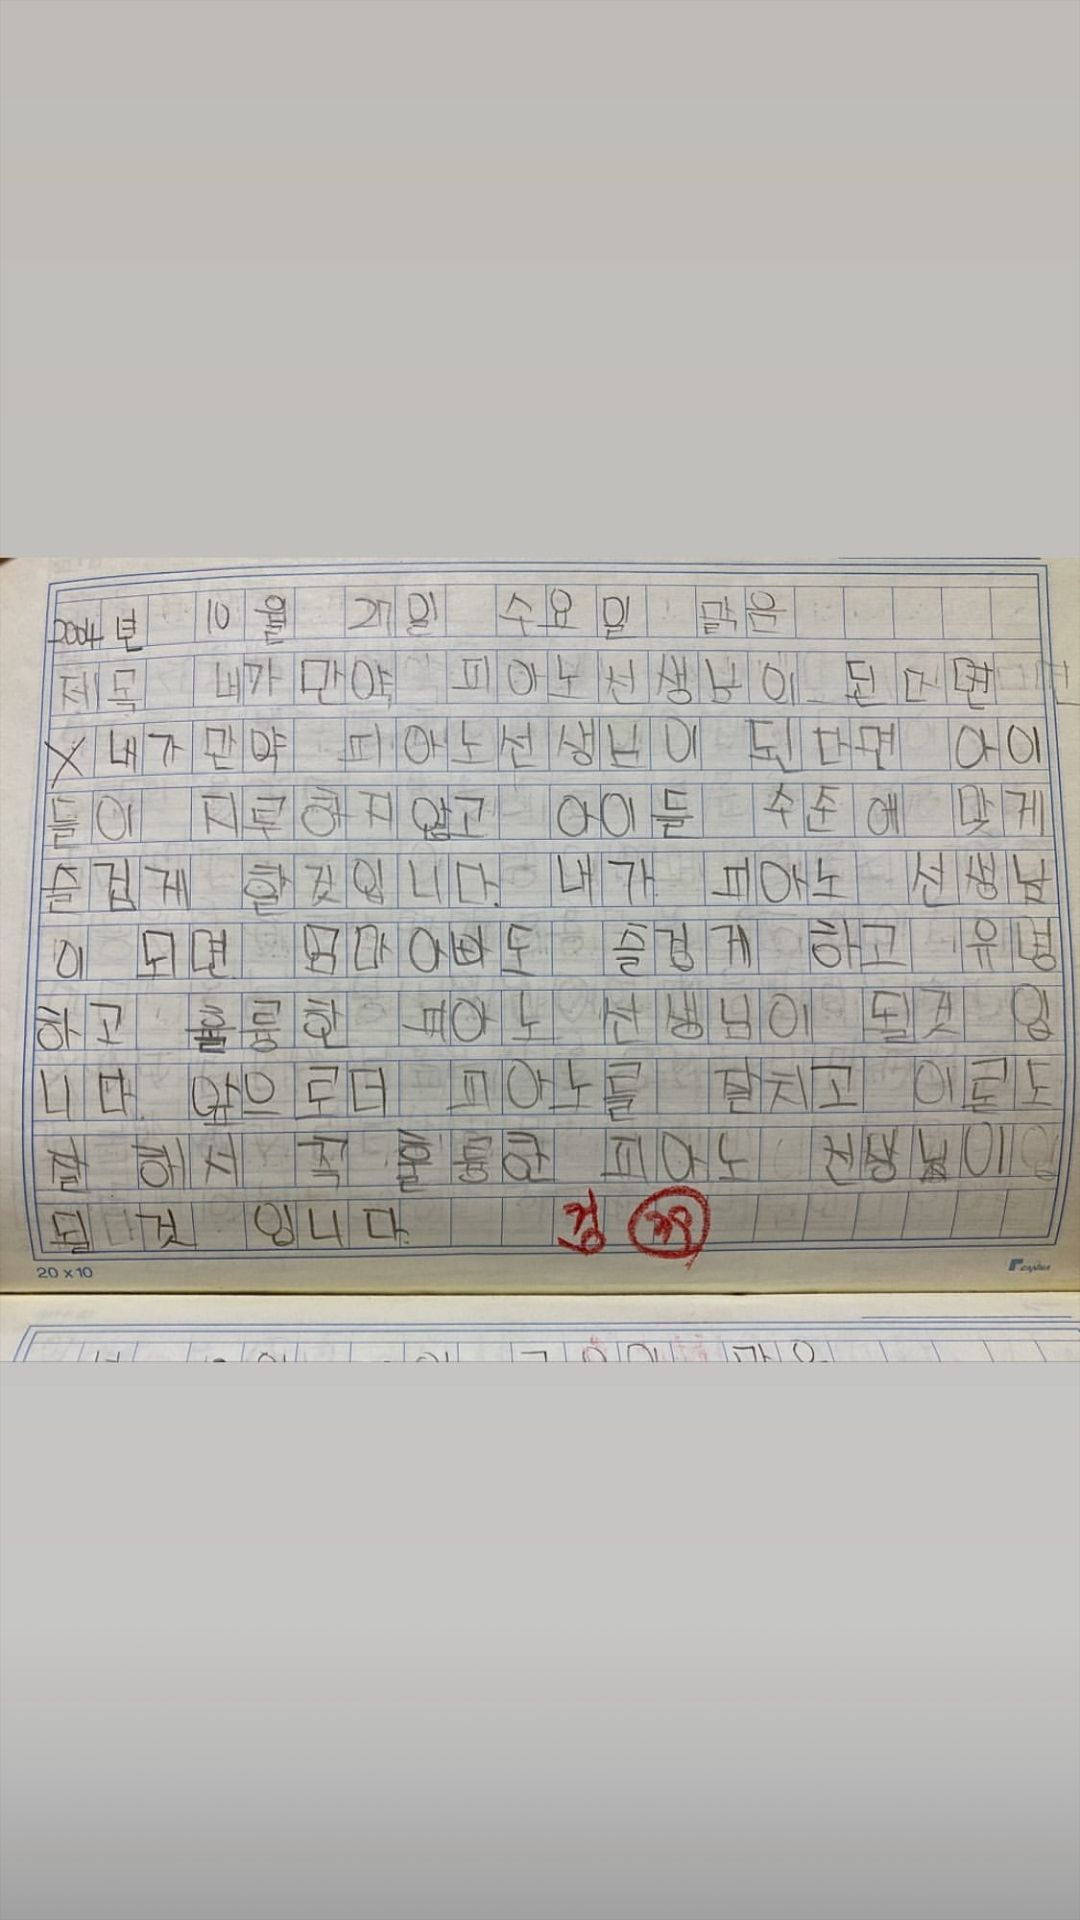 2004년 10월 27일 수요일 맑은
제목 내가 만약 피아노선생님이 된다면
X내가만약 피아노선생님이 된다면 아이
들이 지루하지 않고 아이들 수준에 맞게
즐겁게 할것입니다. 내가 피아노 선생님
이 되면 엄마아빠도 즐겁게 하고 유명
하고 훌륭한 피아노 선생님이 될것 입
니다. 앞으로더 피아노를 잘치고 이론도
잘 해서 꼭 훌륭한 피아노 선생님이
될 것 입니다.
검
20x10